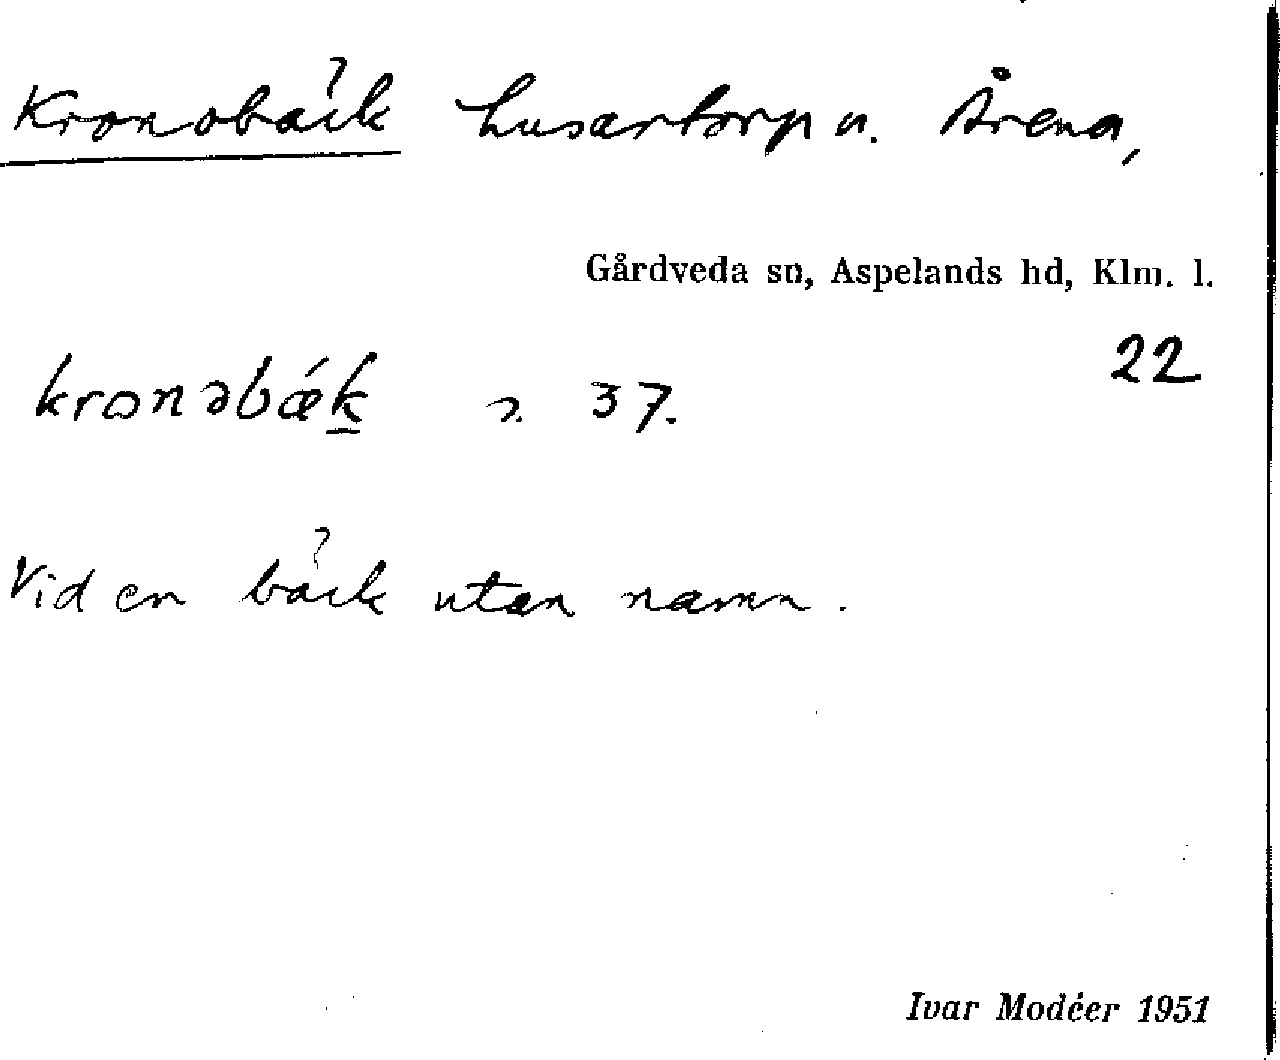 Kronobäck husartorp u. Årena,
Gårdveda sn, Aspelands hd, Klm. l.
22
kronəbǽk 37.
Vid en bäck utan namn.
Ivar Modéer 1951